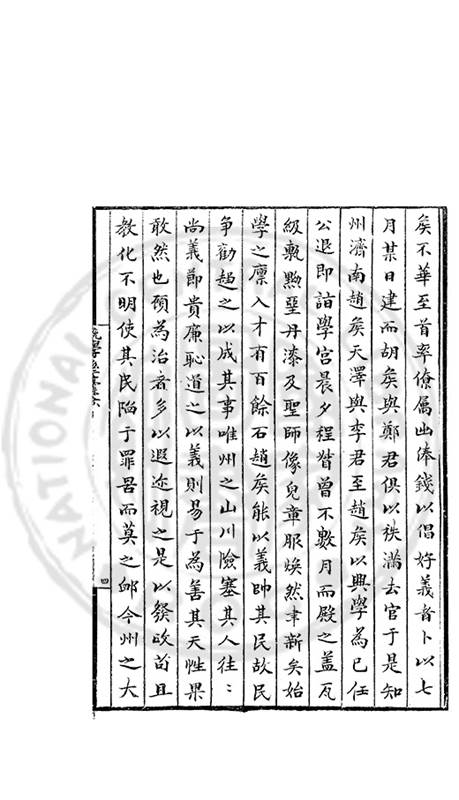 矣不華至首率僚屬出俸錢以倡好義者卜以七
月某日建而胡矣與鄭君俱以秩滿去官于是知
州濟南趙矣天澤與李君至趙矣以興學為已任
公退即詣學宫晨夕程督曾不數月而殿之蓋瓦
級甎黝堊丹漆及聖師像皃章服煥然聿新矣始
學之廩入才有百餘石趙矣能以義帥其民故民
争勸趨之以成其事唯州之山川險塞其人往〻
尚義節貴廉恥道之以義則易于為善其天性果
敢然也顧為治者多以遐迩視之是以發政苟且
教化不明使其民陷于罪罟而莫之邺今州之大
四
NATIONAL